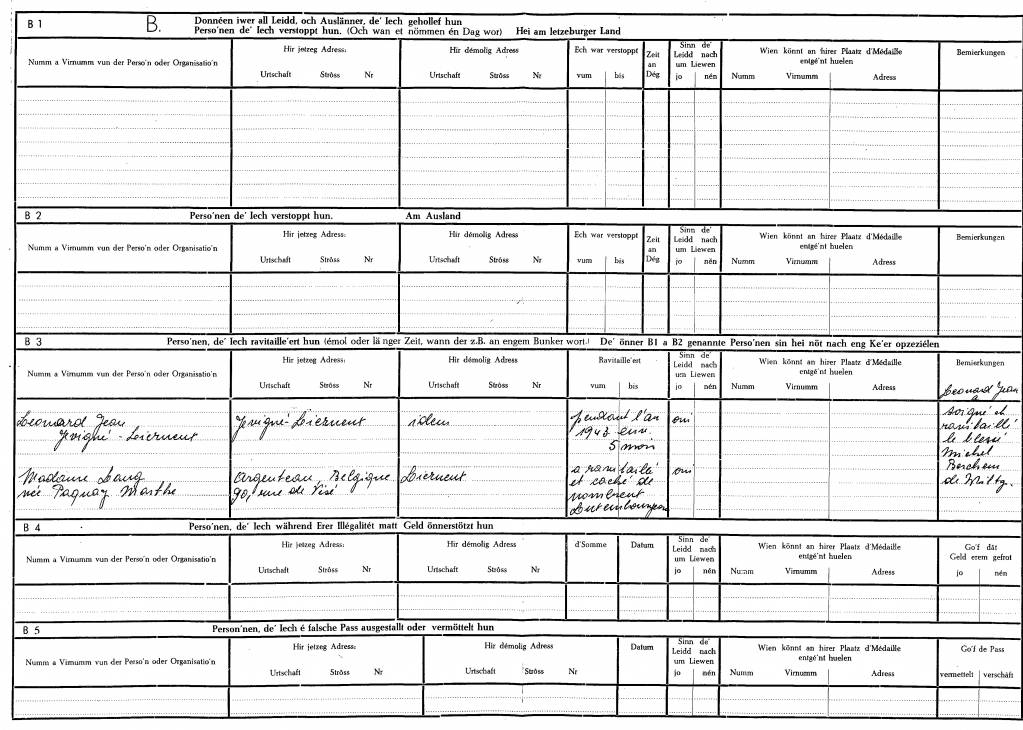 B 1
B.
Donnéen iwer all Leidd, och Auslänner, de' Iech gehollef hun
Perso'nen de' Iech verstoppt hun. (Och wan et nömmen én Dag wor) Hei am letzeburger Land
Numm a Virnumm vun der Perso'n oder Organisatio'n
Hir jetzeg Adress:
Urtschaft Ströss Nr
Hir démolig Adress
Urtschaft Ströss Nr
Ech war verstoppt
vum bis
Zeit
an
Dég
Sinn de'
Leidd nach
um Liewen
jo nén
Wien könnt an hirer Plaatz d'Médaille
entgé'nt huelen
Numm Virnumm Adress
Bemierkungen
B 2
Perso'nen de' Iech verstoppt hun. Am Ausland
Numm a Virnumm vun der Perso'n oder Organisatio'n
Hir jetzeg Adress:
Urtschaft Ströss Nr
Hir démolig Adress
Urtschaft Ströss Nr
Ech war verstoppt
vum bis
Zeit
an
Dég
Sinn de'
Leidd nach
um Liewen
jo nén
Wien könnt an hirer Plaatz d'Médaille
entgé'nt huelen
Numm Virnumm Adress
Bemierkungen
B 3
Perso'nen, de' Iech ravitaille'ert hun (émol oder länger Zeit, wann der z.B. an engem Bunker wort.) De' önner B1 a B2 genannte Perso'nen sin hei nöt nach eng Ke'er opzeziélen
Numm a Virnumm vun der Perso'n oder Organisatio'n
Hir jetzeg Adress:
Urtschaft Ströss Nr
Hir démolig Adress
Urtschaft Ströss Nr
Ravitaille'ert
vum bis
Sinn de'
Leidd nach
um Liewen
jo nén
Wien könnt an hirer Plaatz d'Médaille
entgé'nt huelen
Numm Virnumm Adress
Bemierkungen
Leonard Jean
Jevigné - Lierneut
Jevigné-Lierneut
idem
pendant l'an
1943 env.
5 mois
oui
Leonard Jean
a
soigné et
ravitaillé
le blessé
Michel
Berchem
de Wiltz.
Madame Lang
née Paquay Marthe
Argenteau, Belgique
90, rue de Visé
Lierneut
a ravitaillé
et caché de
nombreut
Luxembourgeois
oui
B 4
Perso'nen, de' Iech während Erer Illégalitét matt Geld önnerstötzt hun
Numm a Virnumm vun der Perso'n oder Organisatio'n
Hir jetzeg Adress:
Urtschaft Ströss Nr
Hir démolig Adress
Urtschaft Ströss Nr
d'Somme
Datum
Sinn de'
Leidd nach
um Liewen
jo nén
Wien könnt an hirer Plaatz d'Médaille
entgé'nt huelen
Numm Virnumm Adress
Go'f dât
Geld erem gefrot
jo nén
B 5
Person'nen, de' Iech é falsche Pass ausgestallt oder vermöttelt hun
Numm a Virnumm vun der Perso'n oder Organisatio'n
Hir jetzeg Adress:
Urtschaft Ströss Nr
Hir démolig Adress
Urtschaft Ströss Nr
Datum
Sinn de'
Leidd nach
um Liewen
jo nén
Wien könnt an hirer Plaatz d'Médaille
entgé'nt huelen
Numm Virnumm Adress
Go'f de Pass
vermettelt verschâft